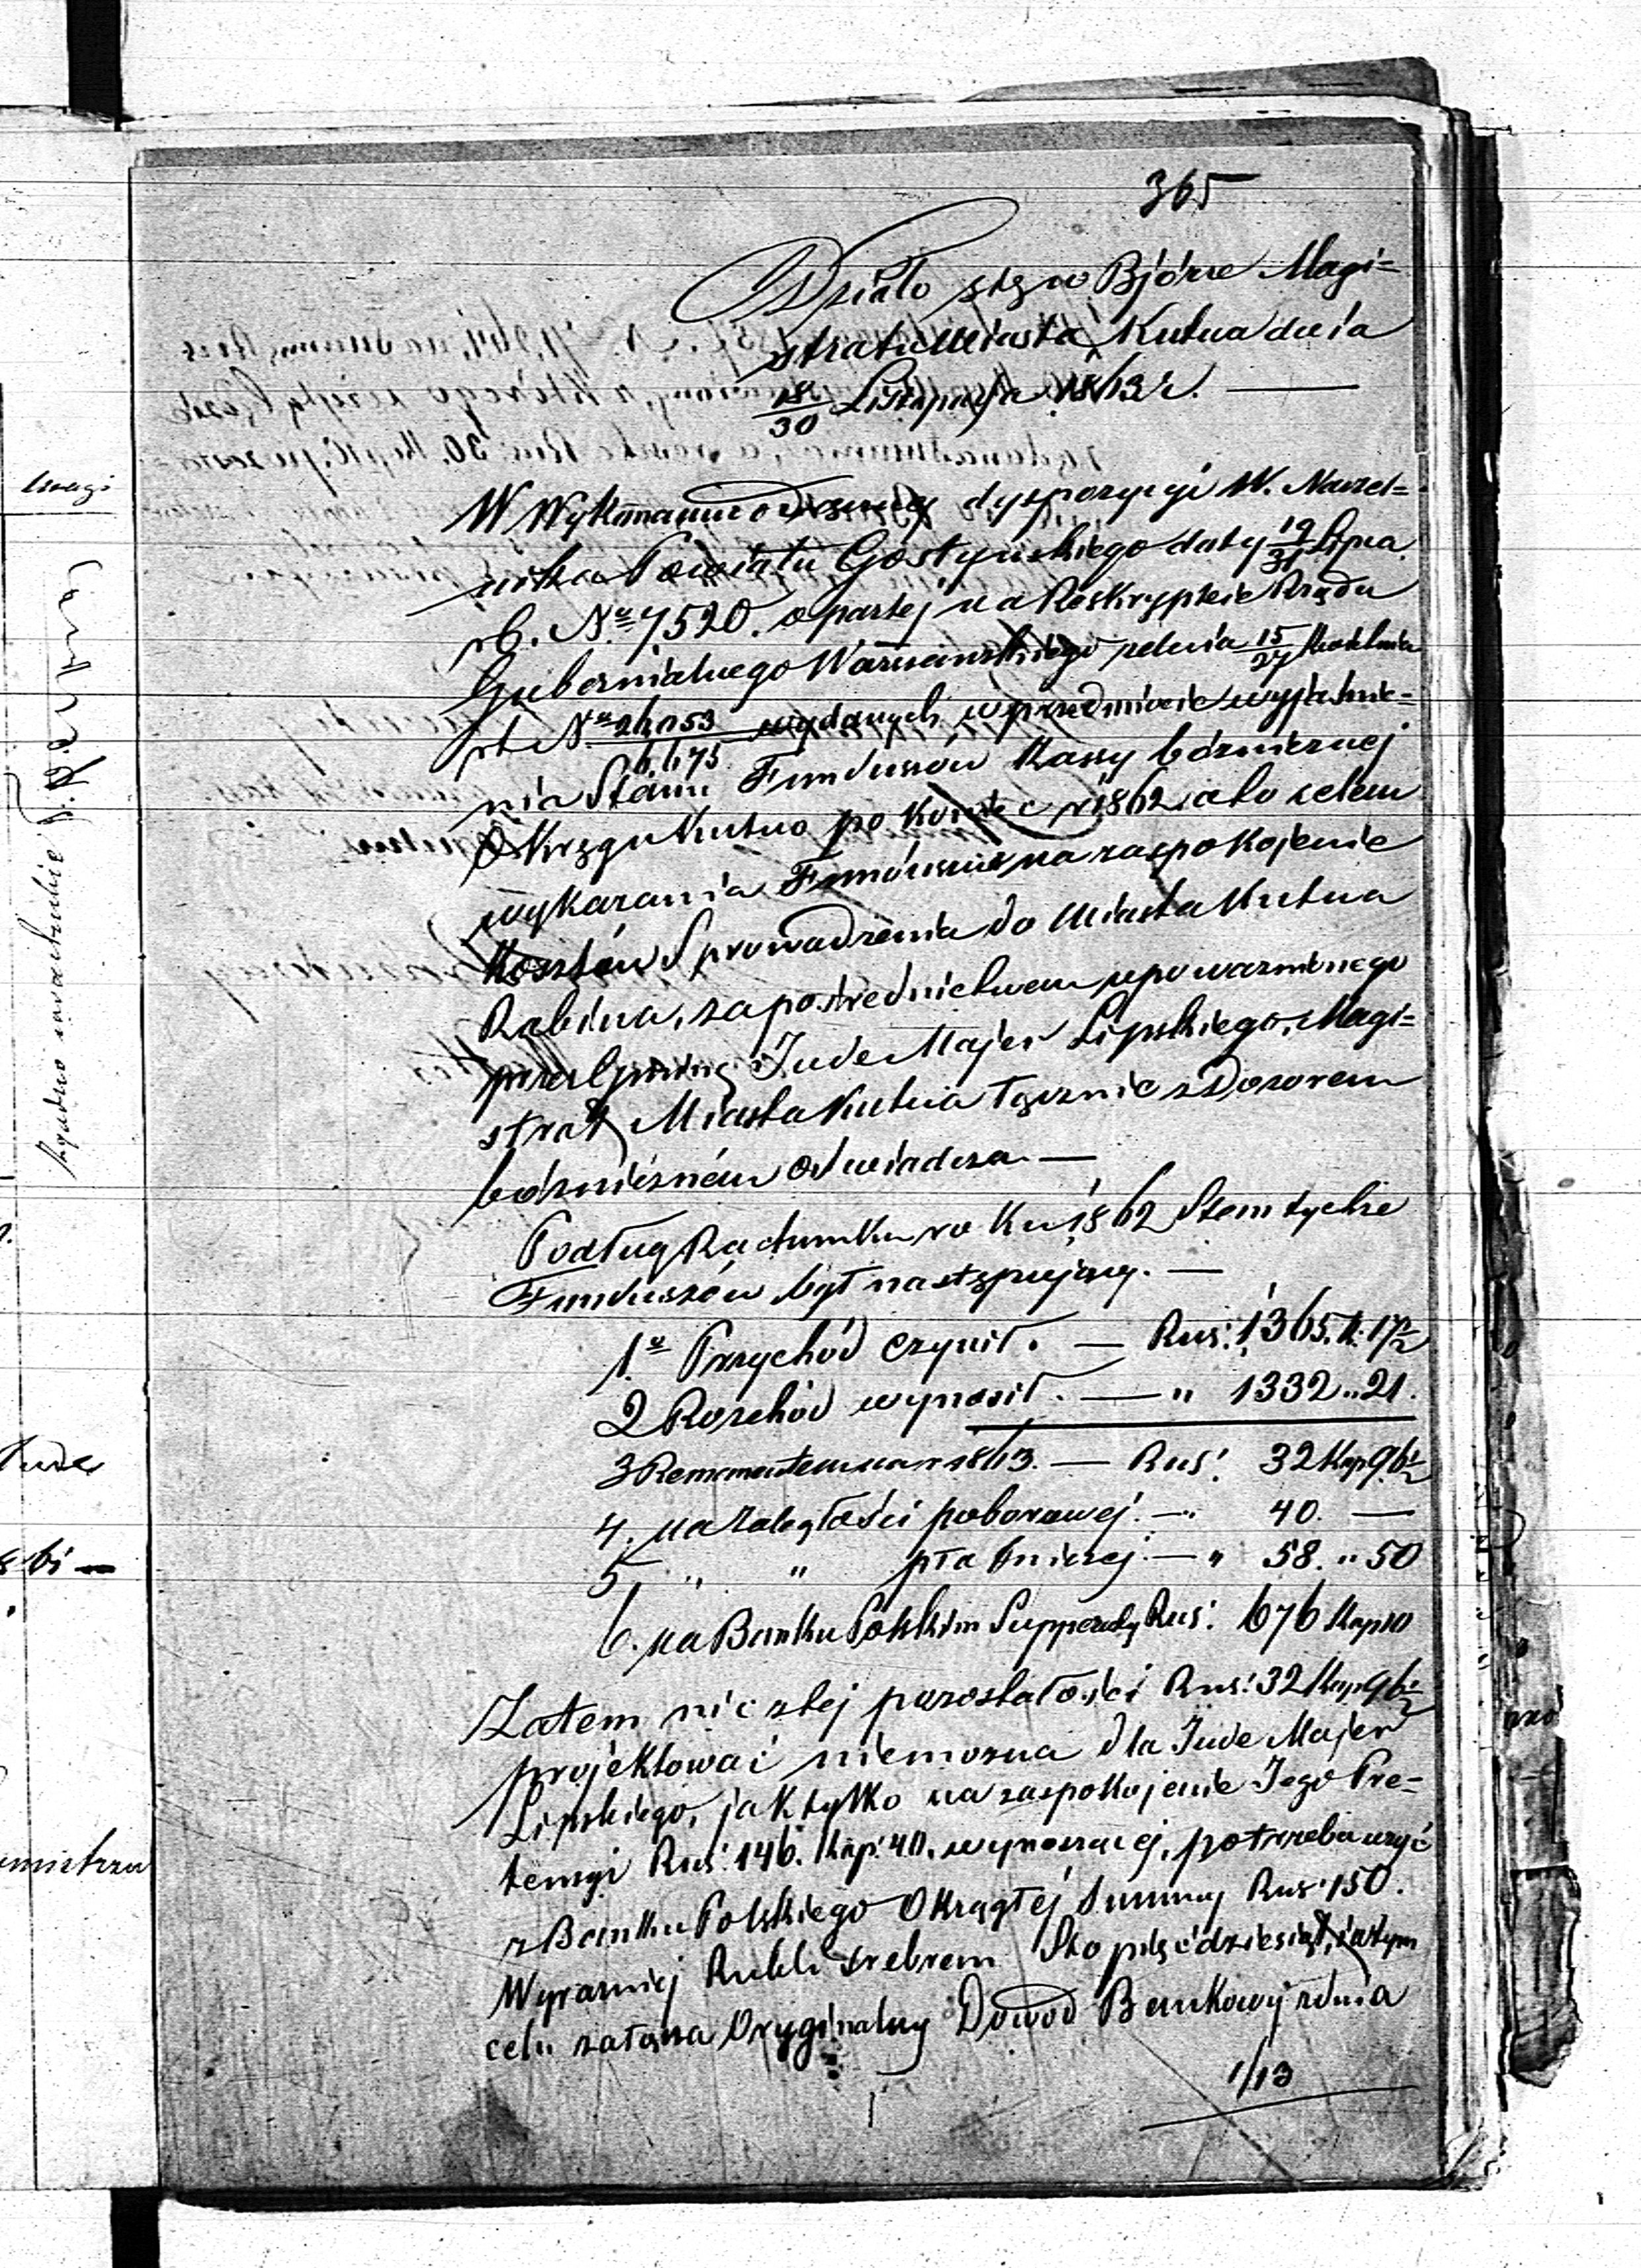 365
Działo się w Bjórze Magi=
stratu Miasta Kutna dnia
18/30 Listopada 1863 r. —
W Wykonaniu odezwy dyspozycyi W. Naczel=
nika Powiatu Gostyńskiego daty 19/31 Lipca
rb. No 7520. opartej na Reskrypcie Rządu
Gubernialnego Warszawskiego z dnia 15/27 Kwietnia
rb No 24053/6475 wydanych w przedmiocie wyjaśnie=
nia Stanu Funduszów Kassy bóżnicznej
Okręgu Kutno po koniec r 1862 a to celem
wykazania Funduszu na zaspokojenie
Kosztów Sprowadzenia do Miasta Kutna
Rabina, za pośrednictwem upoważnionego
przez Gminę Jude Majer Lipskiego, Magi=
strat Miasta Kutna łącznie z Dozorem
bóżniczném oświadcza —
Podług Rachunku roku 1862 Stan tychże
Funduszów był następujący. —
1o Przychód czynił. — Rus: 1365. k. 17½
2 Rozchód wynosił. — " 1332 " 21.
3 Remanentem na r 1863. — Rus: 32 Kop 96½
4. na Zaległości poborowej. — " 40. —
5 " " płatniczej. — " 58. " 50
6. na Banku Polskim Supperaty Rus: 676 Kop 10
Zatem nic z tej pozostałości Rus: 32 Kop 96½
projektować niemożna dla Jude Majer
Lipskiego, jak tylko na zaspokojenie Jego Pre=
tensyi Rus: 146. Kop: 40. wynoszącej, potrzeba użyć
z Banku Polskiego Okrągłéj Summy Rus: 150.
Wyraźniej Rubli srebrem Sto pięćdziesiąt, i w tym
celu załącza Oryginalny Dowód Bankowy z dnia
1/13
uwagi
Jude